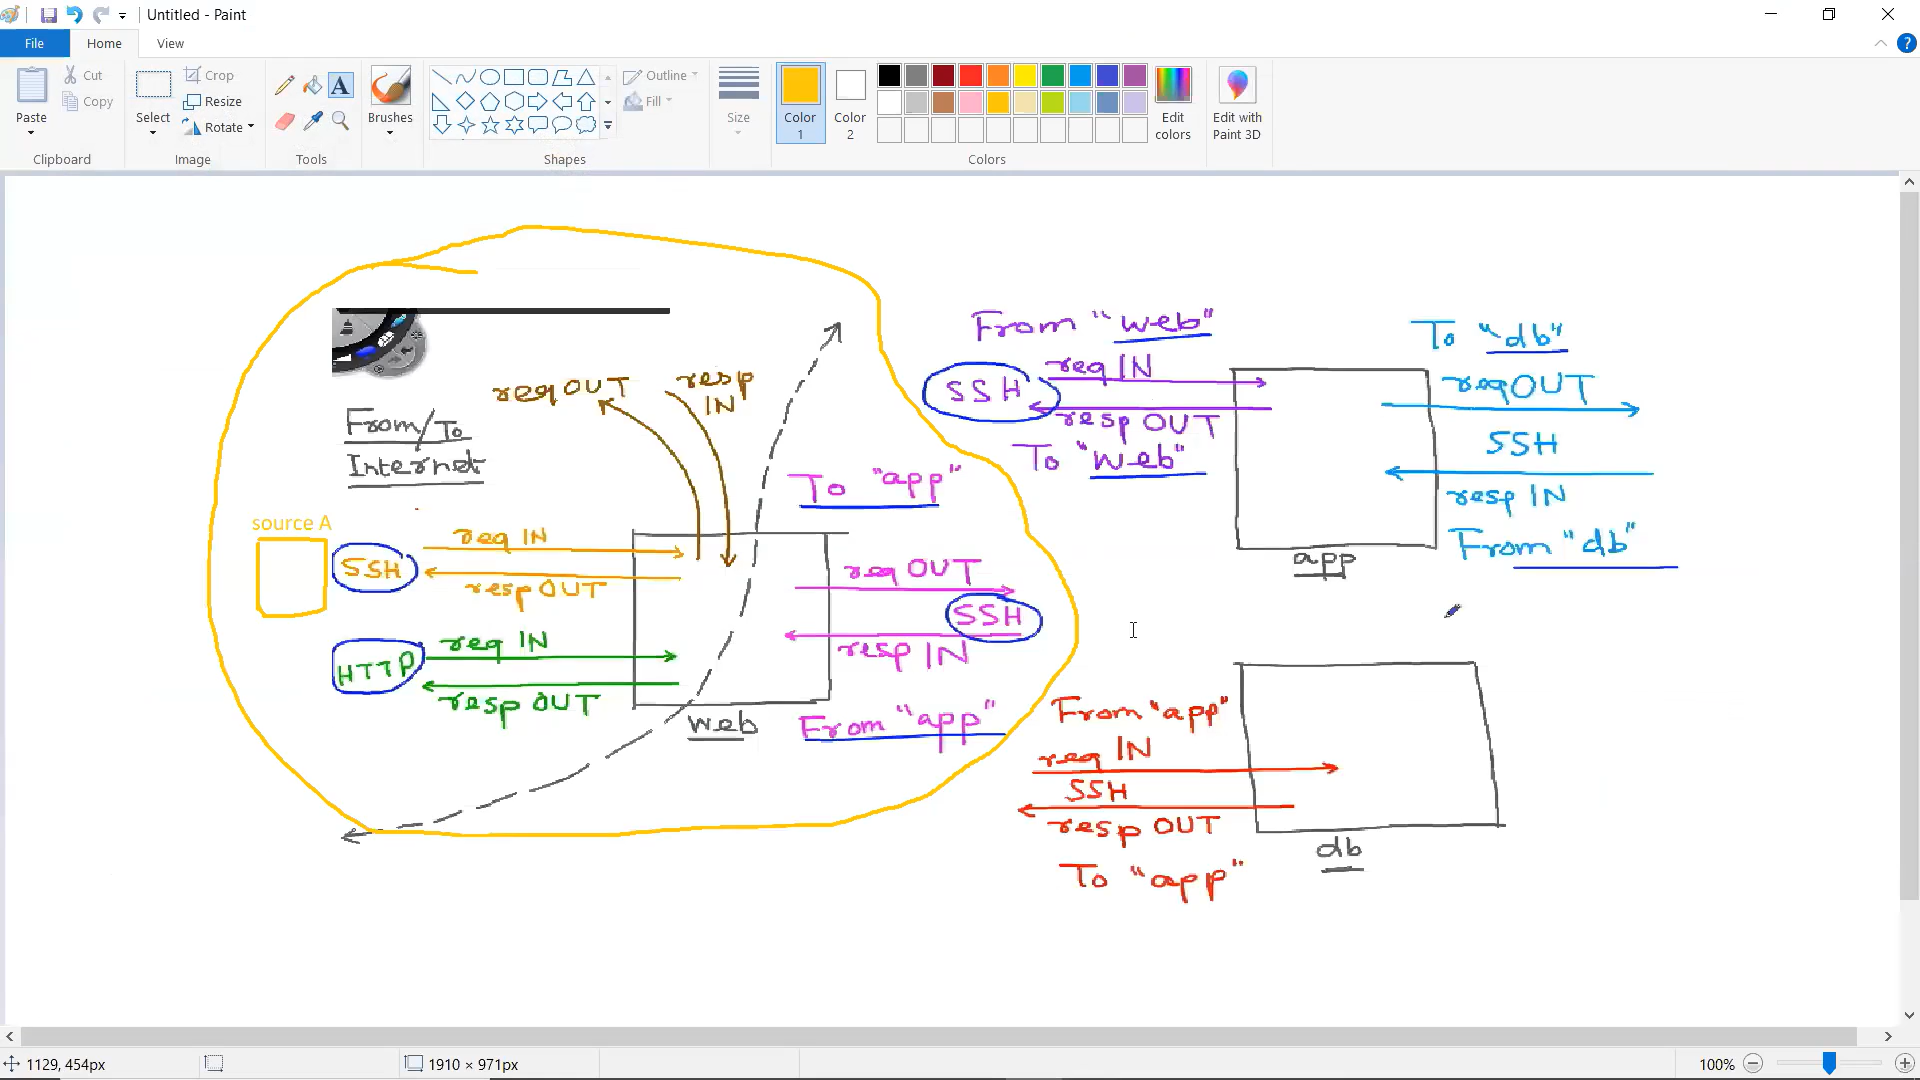 Untitled - Paint
File
Home
View
Paste
Cut
Copy
Clipboard
Select
Crop
Resize
Rotate
Image
A
Tools
Brushes
Shapes
Outline
Fill
Size
Color
1
Color
2
Colors
Edit
colors
Edit with
Paint 3D
?
req OUT
resp
IN
From/To
Internet
source A
SSH
req IN
resp OUT
HTTP
req IN
resp OUT
web
To "app"
req OUT
SSH
resp IN
From "app"
From "web"
SSH
req IN
resp OUT
To "web"
app
To "db"
req OUT
SSH
resp IN
From "db"
From "app"
req IN
SSH
resp OUT
To "app"
db
1129, 454px
1910 × 971px
100%